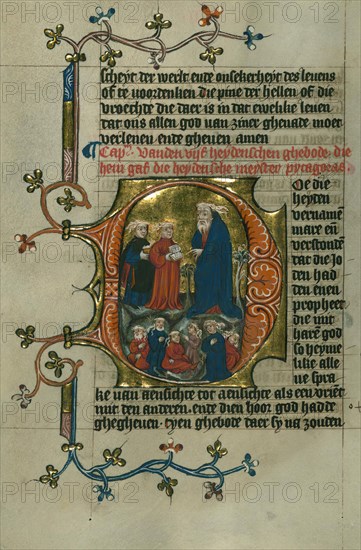 scheyt der werlt ende onsekerheyt des levens
of te voordenken die pine der hellen of die
vroechte die daer is in dat ewelike leven
dat ons allen god van zijnre ghenade moet
verlenen ende gheven amen
Cap. Vanden vijf heydenschen ghebode die
hem gaf die heydensche meyster pytagoras.
Oe die
heyten
vernamē
mare eñ
verstondē
dat die Jo
den had
den enen
propheet
die mit
harē god
so heyme
like alle
sne spra
ke van aensichte tot aensichte als een vriēt
mit den anderen. ende dien hoor god hadde
ghegheven. tyen ghebode daer sy na zouden